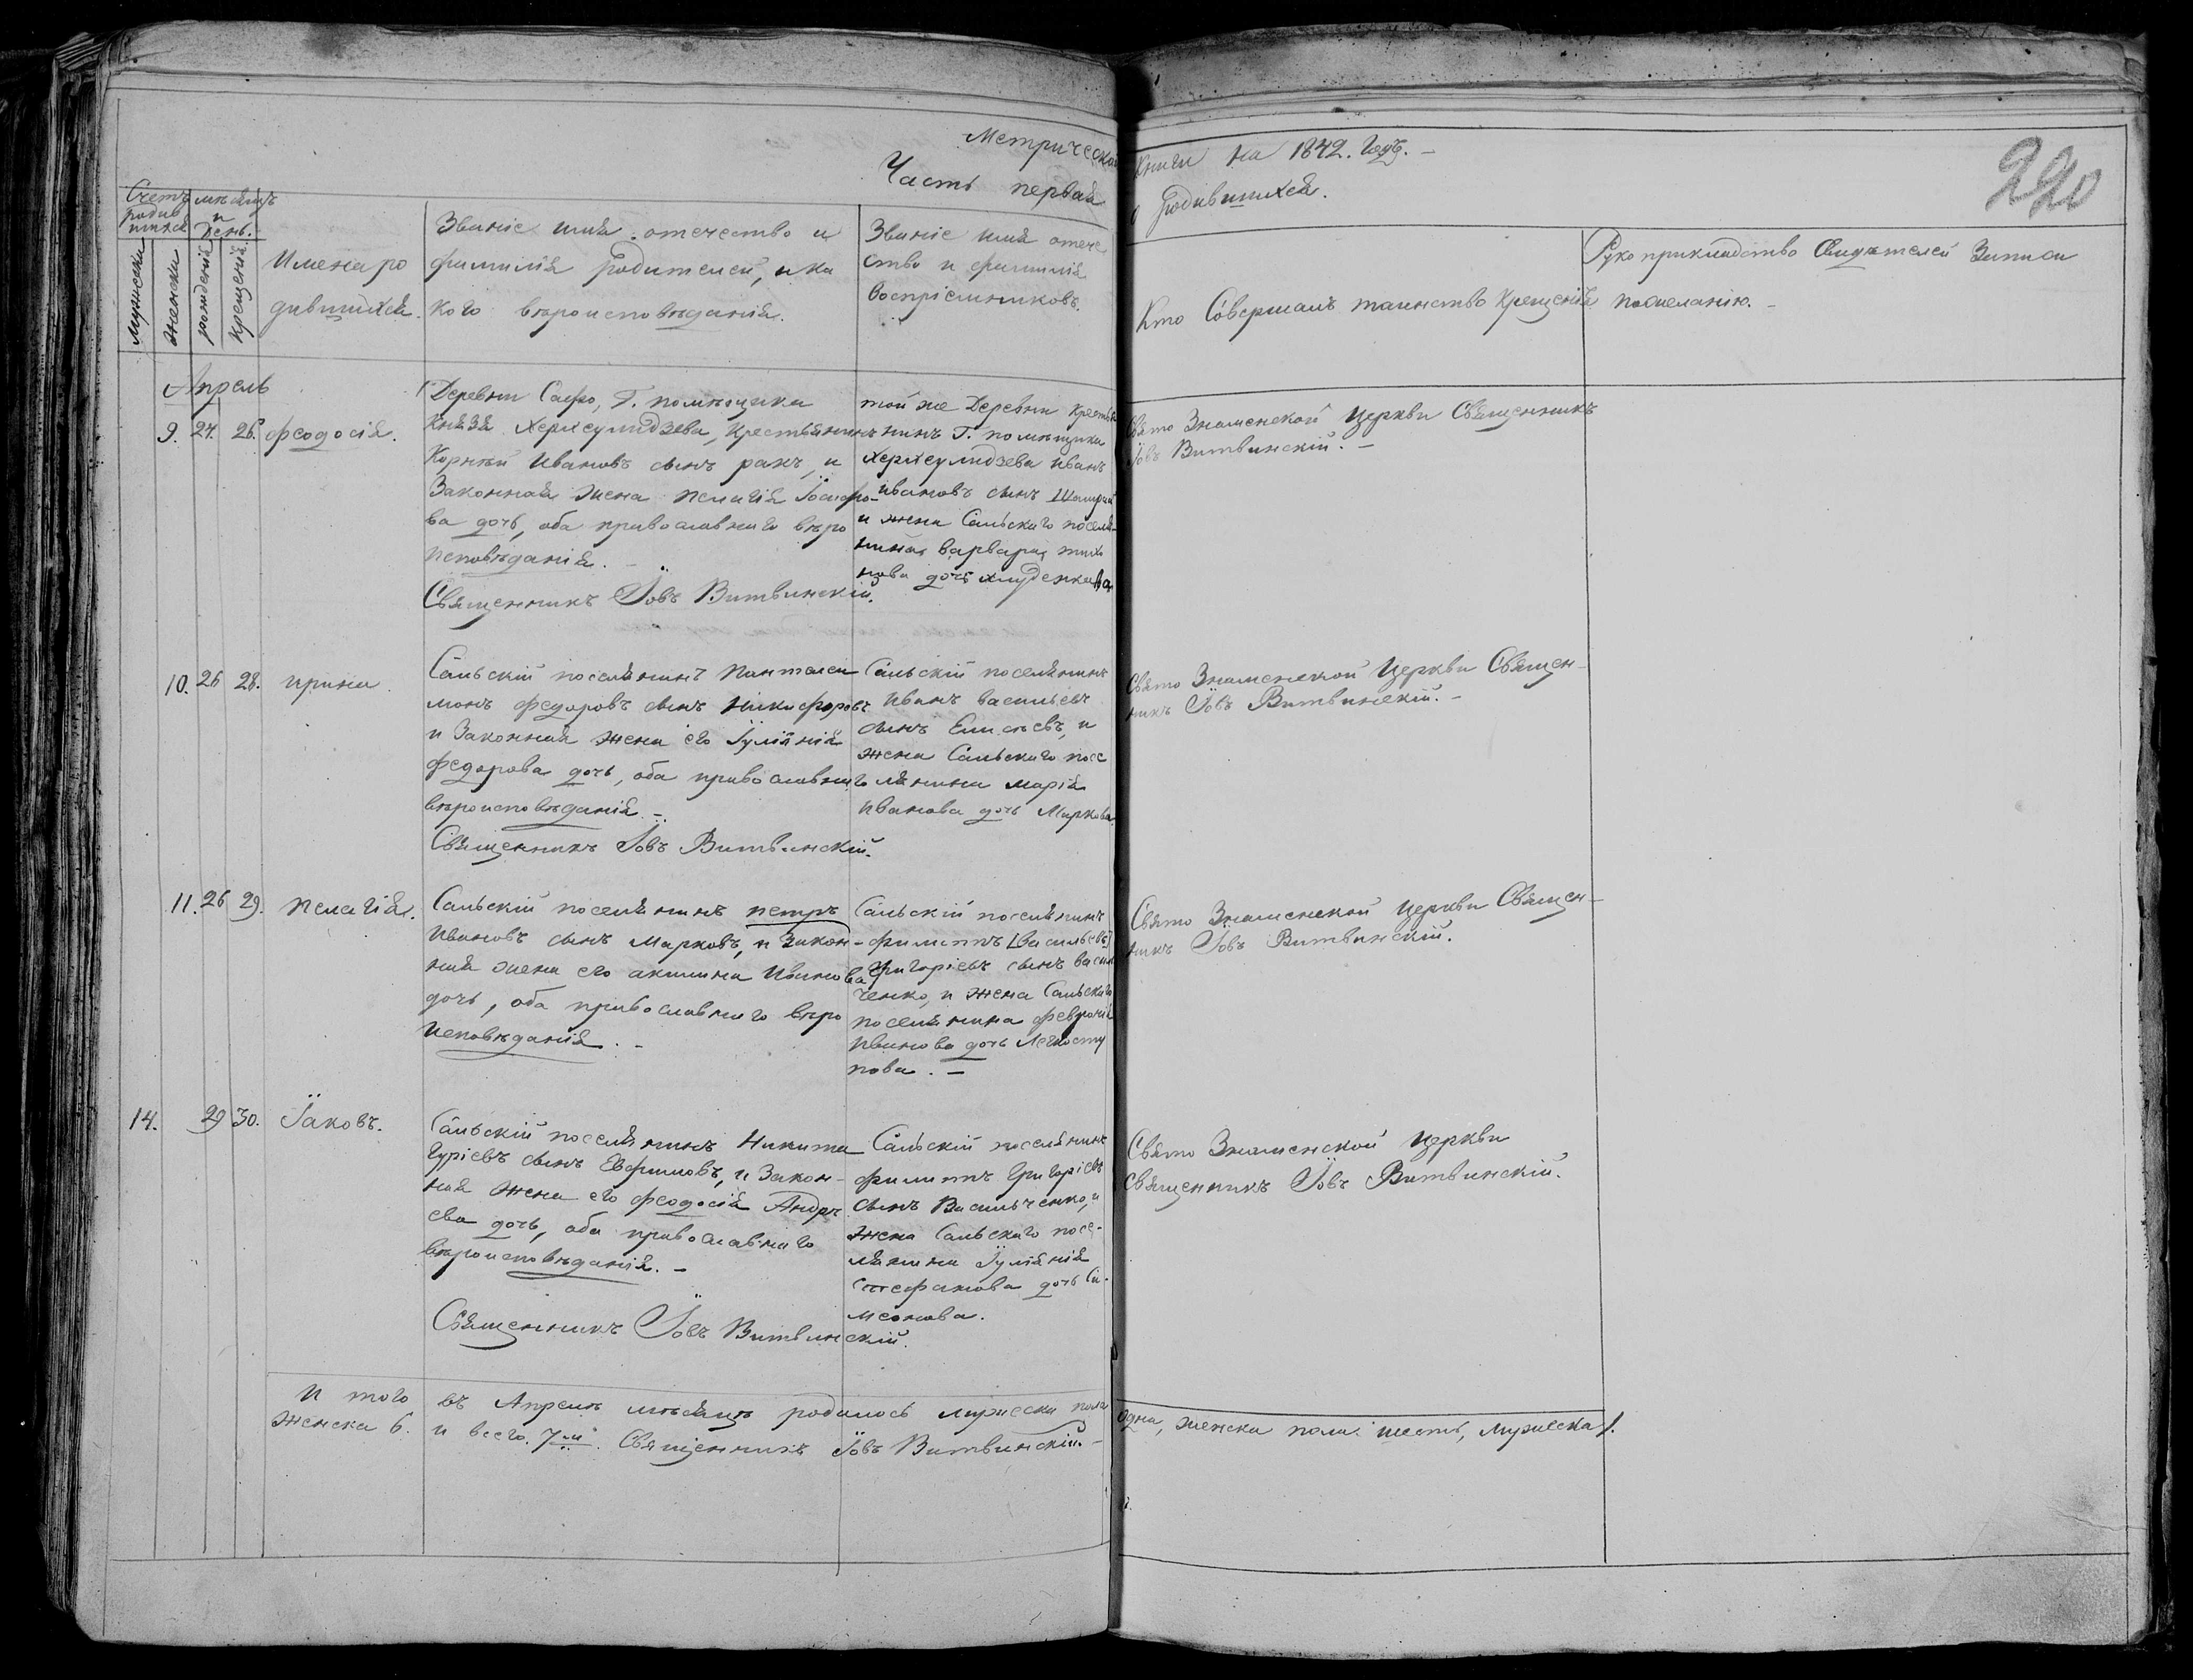 Метрической
Книги на 1842. Годъ. –
220
Часть первая
о родившихся.
Счетъ родившихся
мѣсяцъ и День.
Мужеска
Женска
рожденія
крещенія
Имена ро
дившихся.
Званіе имя отечество и
фамилія родителей, и ка
кого вѣроисповѣданія.
Званіе имя отече
ство и фамилія
воспріемниковъ.
Кто Совершалъ таинство Крещенія
Рукоприкладство Свидѣтелей Записи
по желанію. –
Апрель
9. 24. 26. Феодосія.
Деревни Сафо, Г. помѣщика
Князя Херхеулидзева, Крестьянинъ
Корнѣй Ивановъ сынъ ракъ, и
Законная жена Пелагія Іосифо-
ва дочь, оба православнаго вѣро
исповѣданія. –
Священникъ Іовъ Витвинскій.
той же Деревни Крестья
нинъ Г. помѣщика
Херхеулидзева Иванъ
Ивановъ сынъ
и жена Сальскаго поселя-
нина Варвара
дочь
Свято Знаменской Церкви Священникъ
Іовъ Витвинскій. –
10. 26 28. Ирина
Сальскій поселянинъ Пантелеи
монъ Федоровъ сынъ Никифоровъ
и Законная жена его Іуліянія
Федорова дочь, оба православнаго
вѣроисповѣданія. –
Священникъ Іовъ Витвинскій.
Сальскій поселянинъ
Иванъ Васильевъ
сынъ Емелѣевъ, и
жена Сальскаго посе
лянина Марія
Иванова дочь Маркова.
Свято Знаменской Церкви Священ-
никъ Іовъ Витвинскій. –
11. 26 29. Пелагія.
Сальскій поселянинъ Петръ
Ивановъ сынъ Марковъ, и Закон-
ная жена его Акилина Иванова
дочь, оба православнаго вѣро
исповѣданія. –
Сальскій поселянинъ
Филиппъ [Васильевъ]
Григоріевъ сынъ Василь
ченко, и жена Сальскаго
поселянина Февронія
Иванова дочь Легкосту
пова. –
Свято Знаменской Церкви Священ-
никъ Іовъ Витвинскій.
14. 29 30. Іаковъ.
Сальскій поселянинъ Никита
Гуріевъ сынъ Евфимовъ, и Закон-
ная жена его Феодосія Андре
ева дочь, оба православнаго
вѣроисповѣданія. –
Священникъ Іовъ Витвинскій.
Сальскій поселянинъ
Филиппъ Григоріевъ
сынъ Васильченко, и
жена Сальскаго посе-
лянина Іуліянія
Стефанова дочь Си-
меонова.
Свято Знаменской Церкви
Священникъ Іовъ Витвинскій.
И того въ Апрелѣ мѣсяцѣ родилось мужеска пола одна, женска пола шесть, мужеска 1.
женска 6. и всего 7-м. Священникъ Іовъ Витвинскій. –